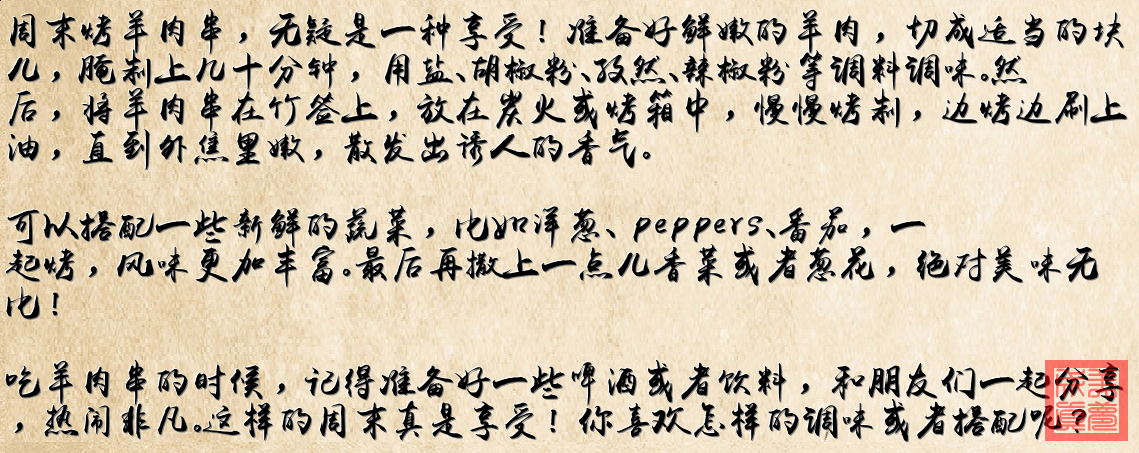 周末烤羊肉串，无疑是一种享受！准备好鲜嫩的羊肉，切成适当的块
儿，腌制上几十分钟，用盐、胡椒粉、孜然、辣椒粉等调料调味。然
后，将羊肉串在竹签上，放在炭火或烤箱中，慢慢烤制，边烤边刷上
油，直到外焦里嫩，散发出诱人的香气。
可以搭配一些新鲜的蔬菜，比如洋葱、peppers、番茄，一
起烤，风味更加丰富。最后再撒上一点儿香菜或者葱花，绝对美味无
比！
吃羊肉串的时候，记得准备好一些啤酒或者饮料，和朋友们一起分享
，热闹非凡。这样的周末真是享受！你喜欢怎样的调味或者搭配呢？